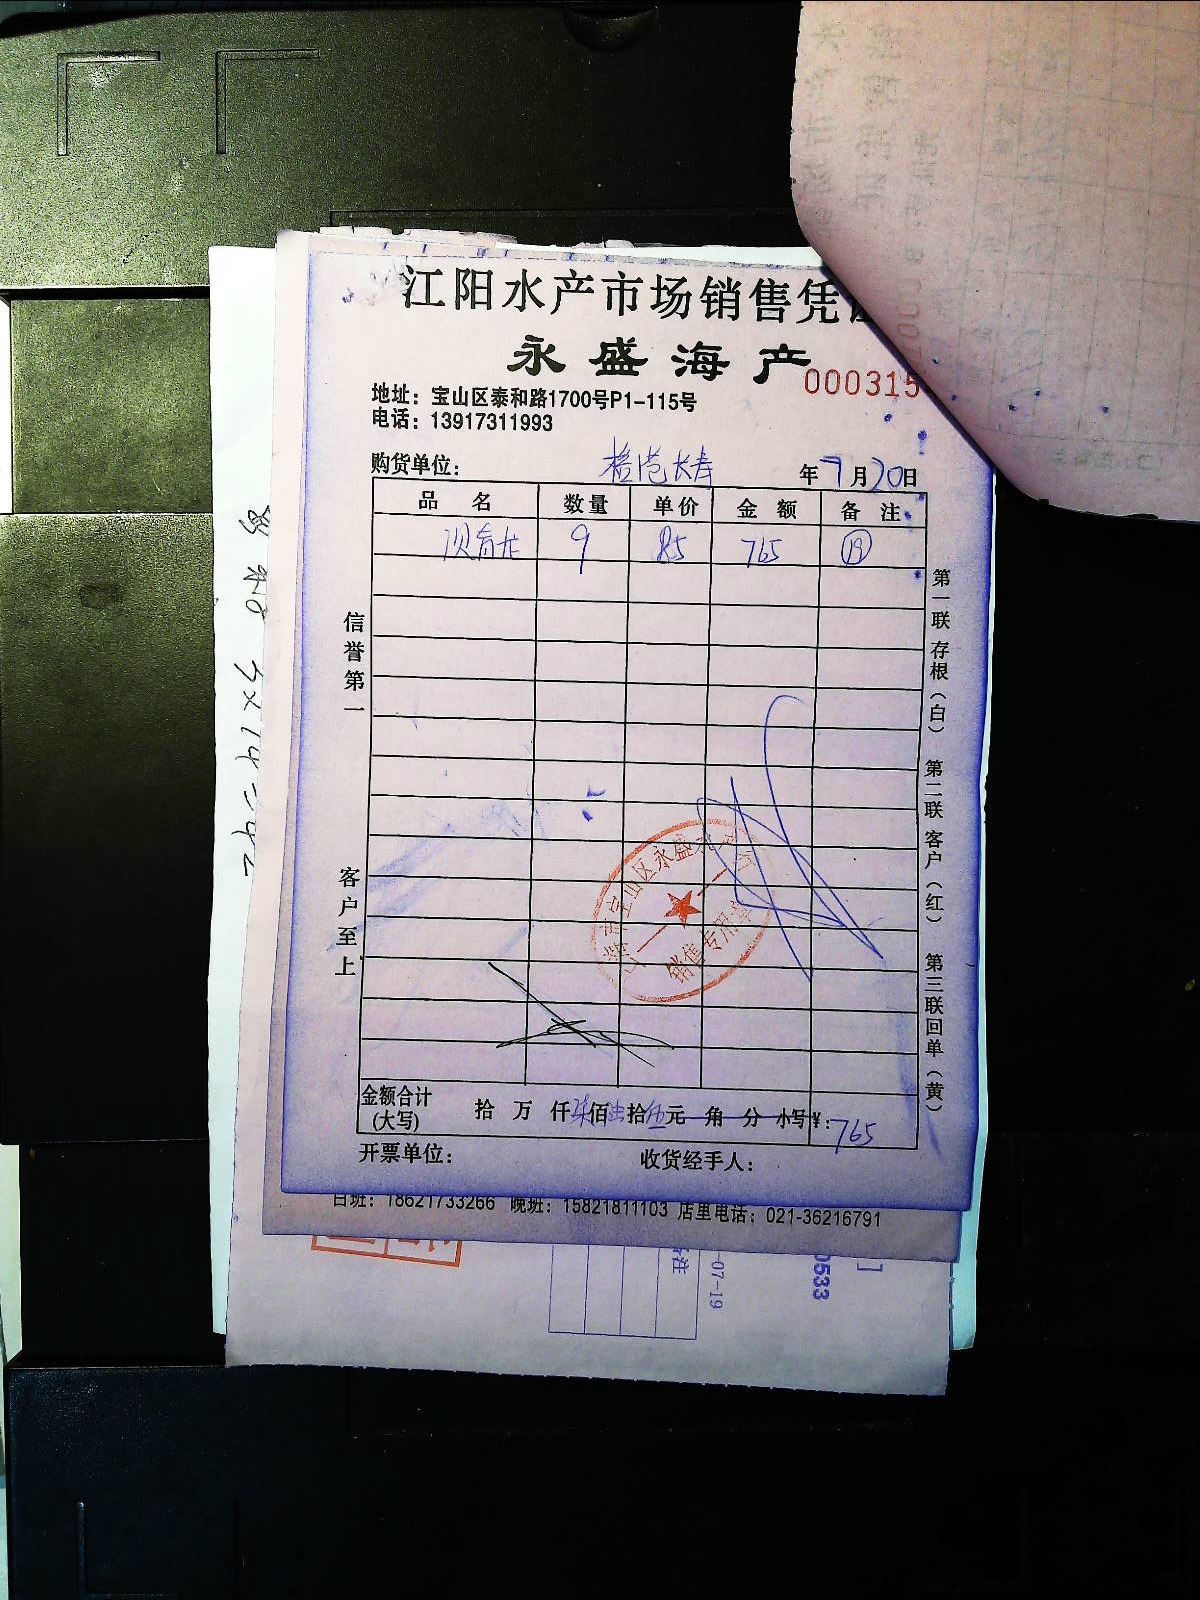 江阳水产市场销售凭
永盛海产
000315
地址：宝山区泰和路1700号P1-115号
电话：13917311993
购货单位： 长寿 年7月20日
品名 数量 单价 金额 备注
9 85 765 ⑲
信誉第一
客户至上
第一联存根（白） 第二联客户（红） 第三联回单（黄）
宝山区永盛水产
销售专用章
金额合计(大写) 拾 万 仟柒佰陆拾伍元 角 分 小写¥：765
开票单位： 收货经手人：
白班：18621733266 晚班：15821811103 店里电话：021-36216791
-07-19
0533